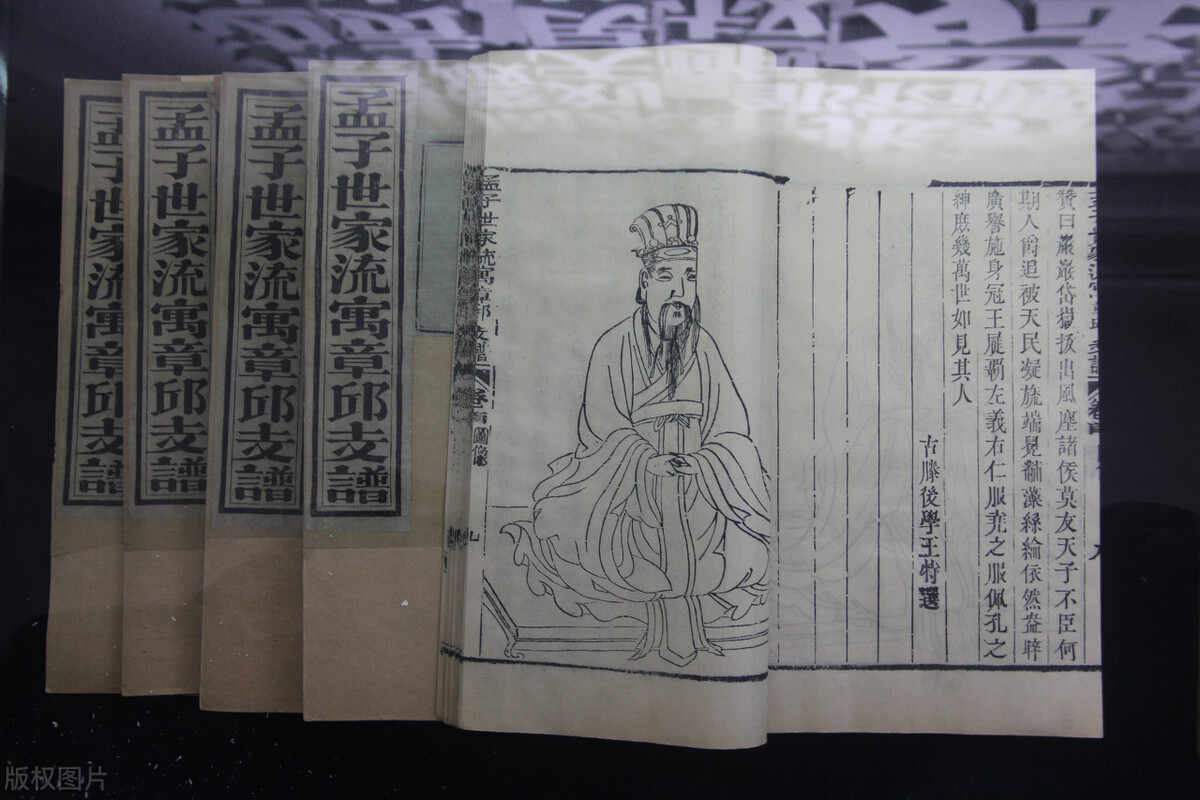 孟子世家流寓章邱支譜
孟子世家流寓章邱支譜
孟子世家流寓章邱支譜
孟子世家流寓章邱支譜
孟子世家流寓章邱支譜
卷首
圖像
贊曰巖巖岱嶽拔出風塵諸侯莫友天子不臣何
期人爵追被天民凝旒端冕黼藻絲綸依然盎睟
廣譽施身冠王屣霸左義右仁服堯之服佩孔之
紳庶幾萬世如見其人
古滕後學王特選
版权图片